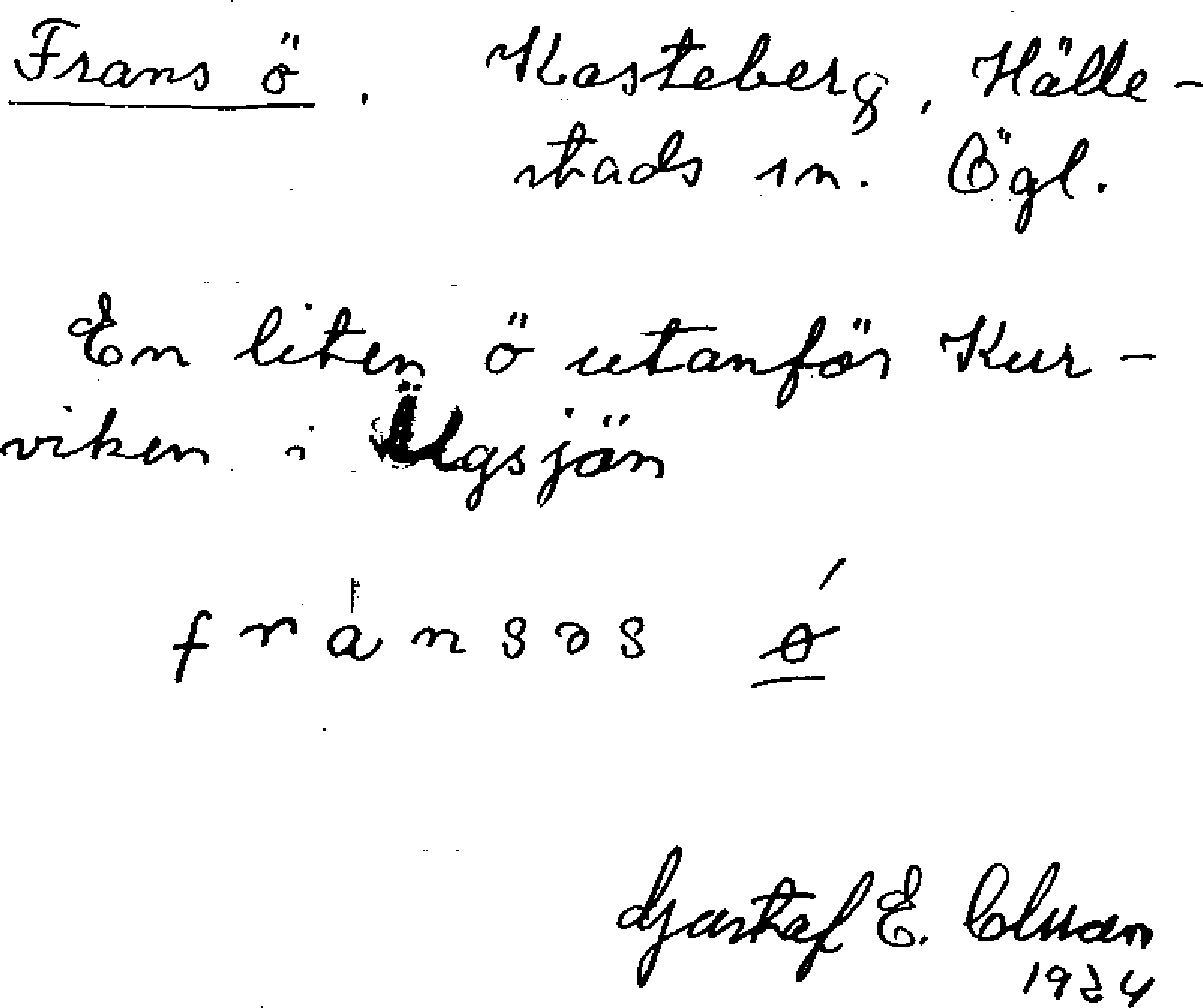 Frans ö. Kasteberg, Hälle-
stads sn. Ögl.
En liten ö utanför Kur-
viken i Älgsjön
fránsəs ǿ
Gustaf E.